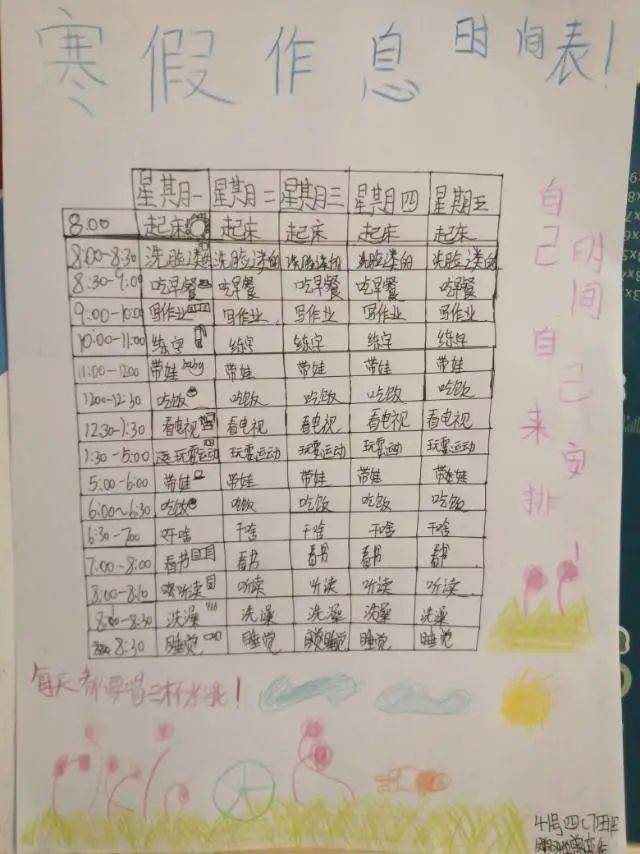 寒假作息时间表!
星期一 星期二 星期三 星期四 星期五
8.00 起床 起床 起床 起床 起床
8:00-8:30 洗脸 洗脸 洗脸 洗脸 洗脸
8:30-9:00 吃早餐 吃早餐 吃早餐 吃早餐 吃早餐
9:00-10:00 写作业 写作业 写作业 写作业 写作业
10:00-11:00 练字 练字 练字 练字 练字
11:00-1200 带娃 baby 带娃 带娃 带娃 带娃
1200-12:30 吃饭 吃饭 吃饭 吃饭 吃饭
12:30-1:30 看电视 看电视 看电视 看电视 看电视
1:30-5:00 玩耍运动 玩耍运动 玩耍运动 玩耍运动 玩耍运动
5:00-6:00 带娃 带娃 带娃 带娃 带娃
6:00~6:30 吃饭 吃饭 吃饭 吃饭 吃饭
6:30-700 干啥 干啥 干啥 干啥 干啥
7:00-8:00 看书 看书 看书 看书 看书
8:00-8:10 听读 听读 听读 听读 听读
8:30 洗澡 洗澡 洗澡 洗澡 洗澡
8:30 睡觉 睡觉 睡觉 睡觉 睡觉
自己时间
自己来安排!
每天都要喝三杯水哦!